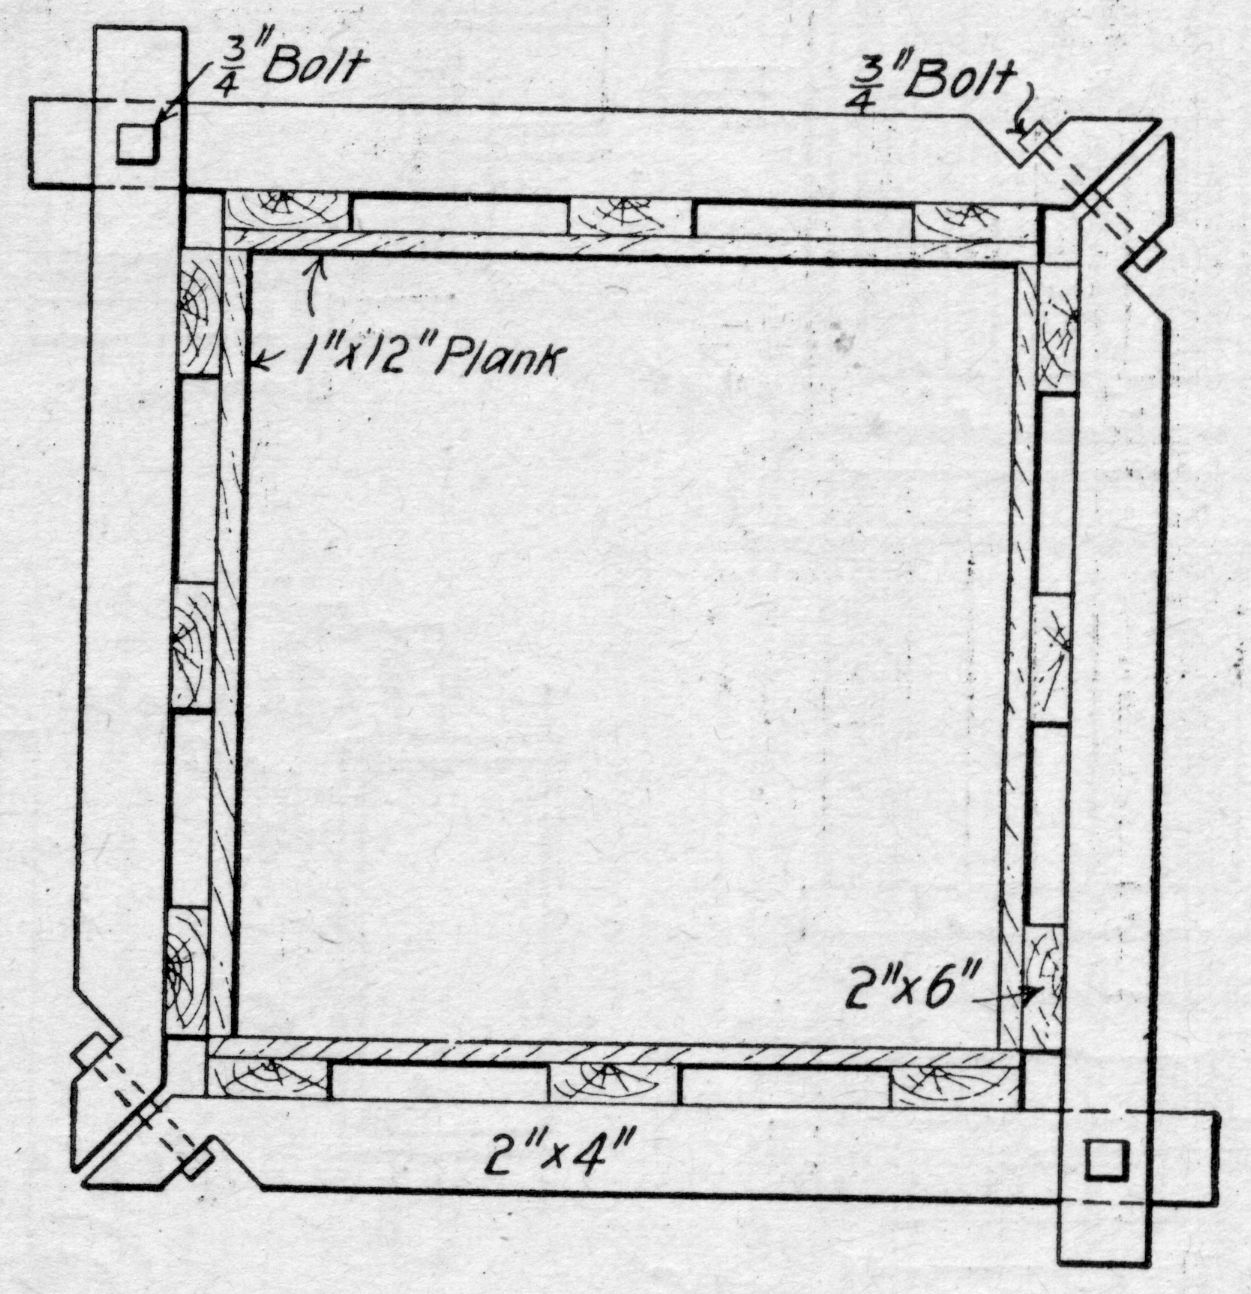 3/4" Bolt
3/4" Bolt
1"x12" Plank
2"x6"
2"x4"